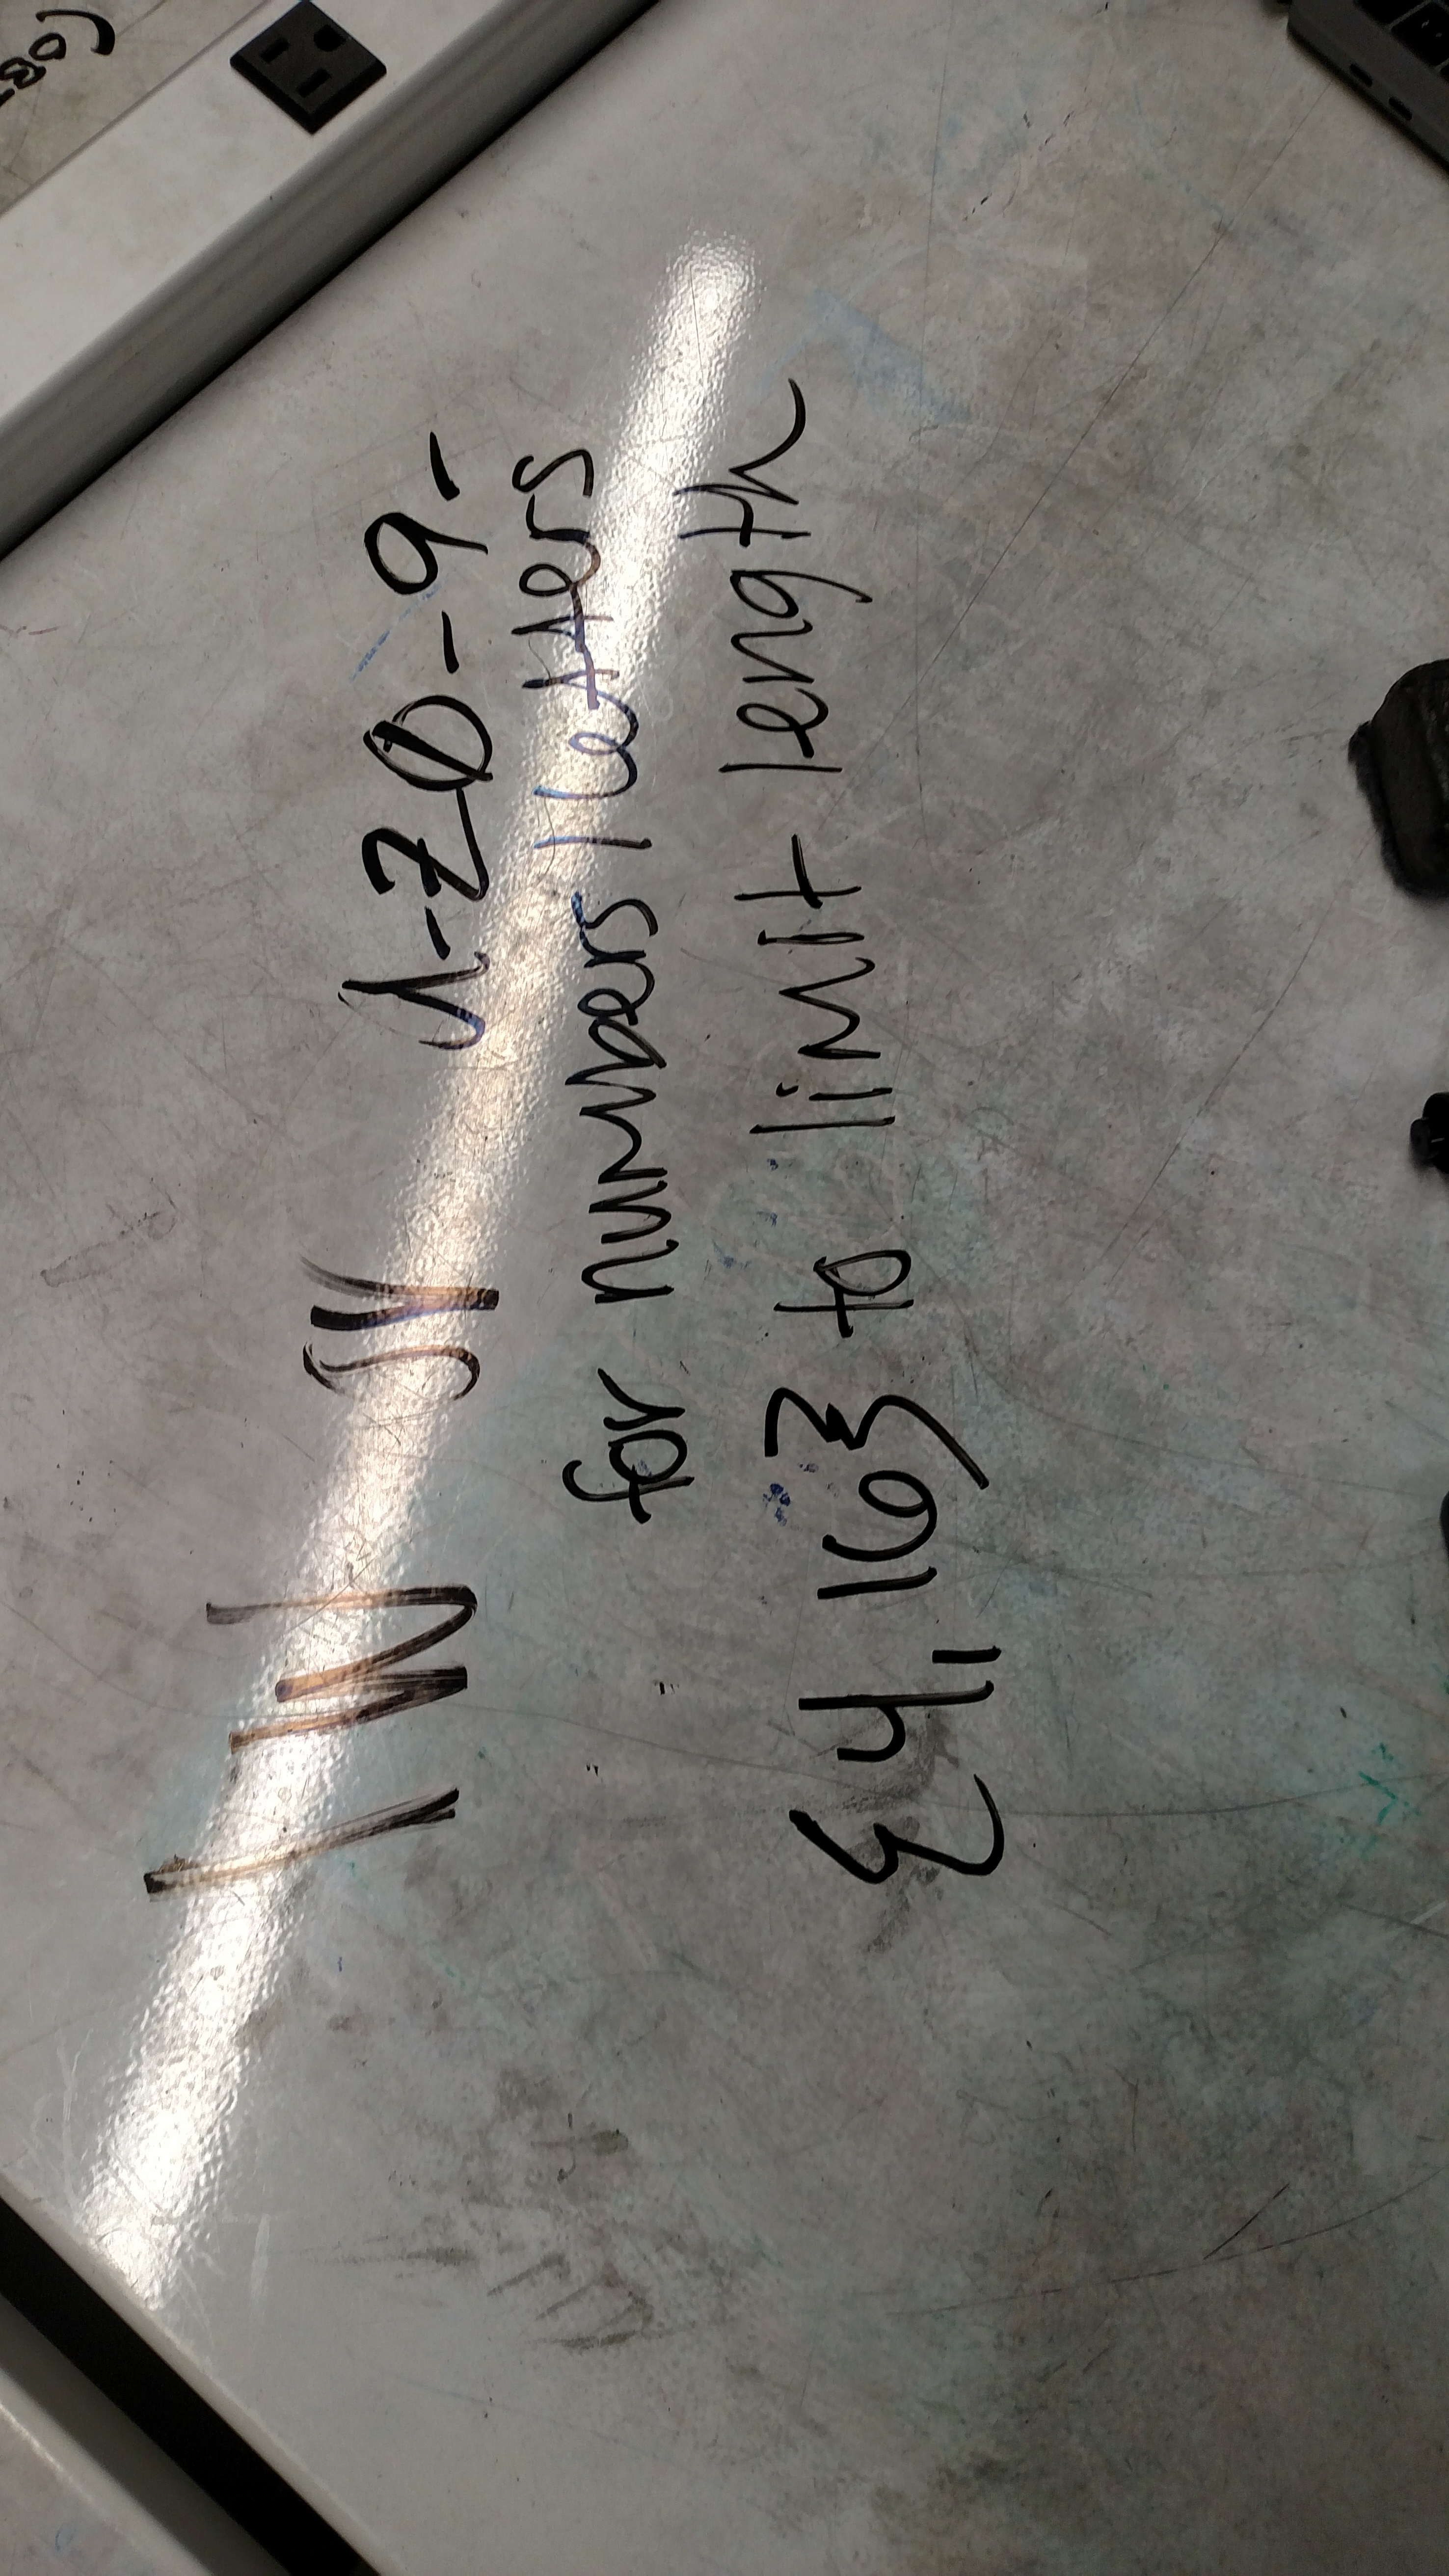 \W A-Z0-9-
for numbers | letters
{4,16} to limit length